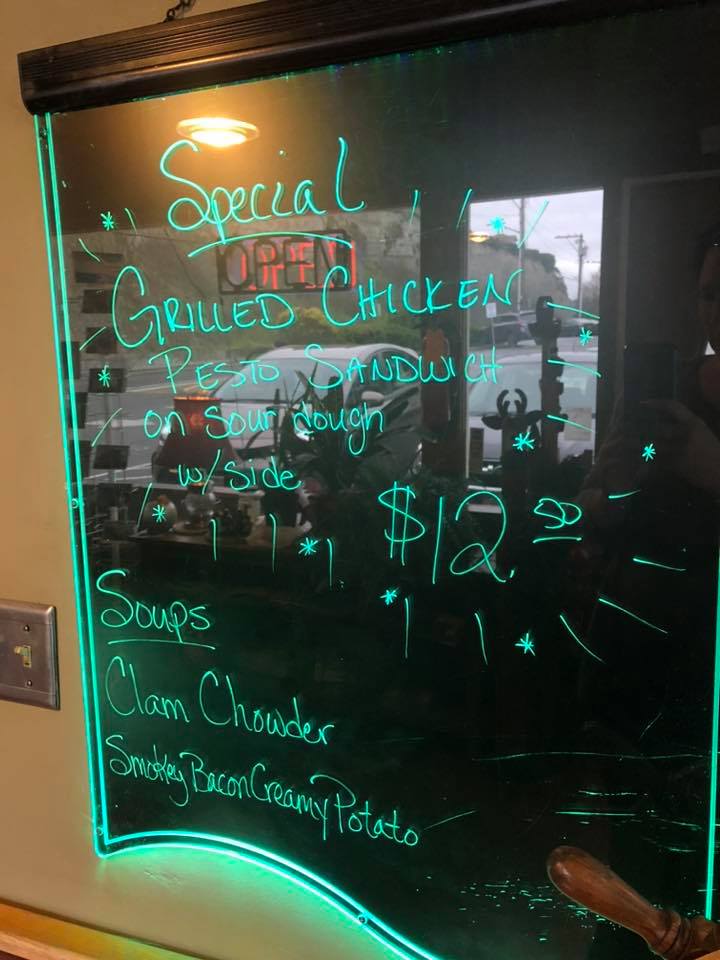 Special
OPEN
GRILLED CHICKEN
PESTO SANDWICH
on Sour dough
w/ Side
$12.50
Soups
Clam Chowder
Smokey Bacon Creamy Potato